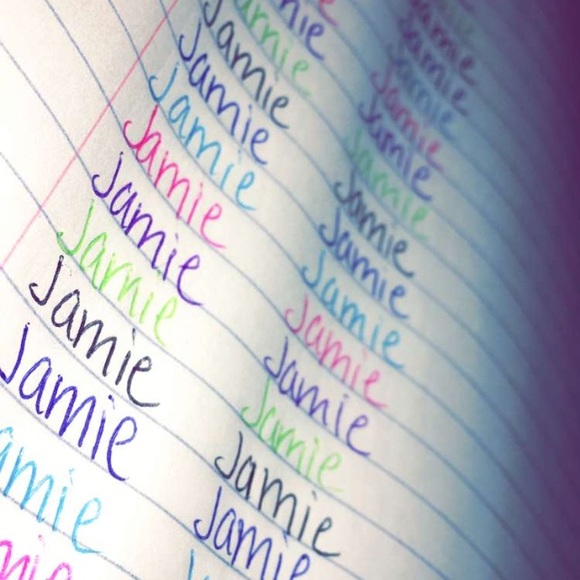 Jamie
Jamie
Jamie
Jamie
mie Jamie
mie Jamie
Jamie Jamie
Jamie Jamie
Jamie Jamie
Jamie Jamie
Jamie Jamie
Jamie Jamie
Jamie Jamie
Jamie Jamie
Jamie Jamie
amie
mie